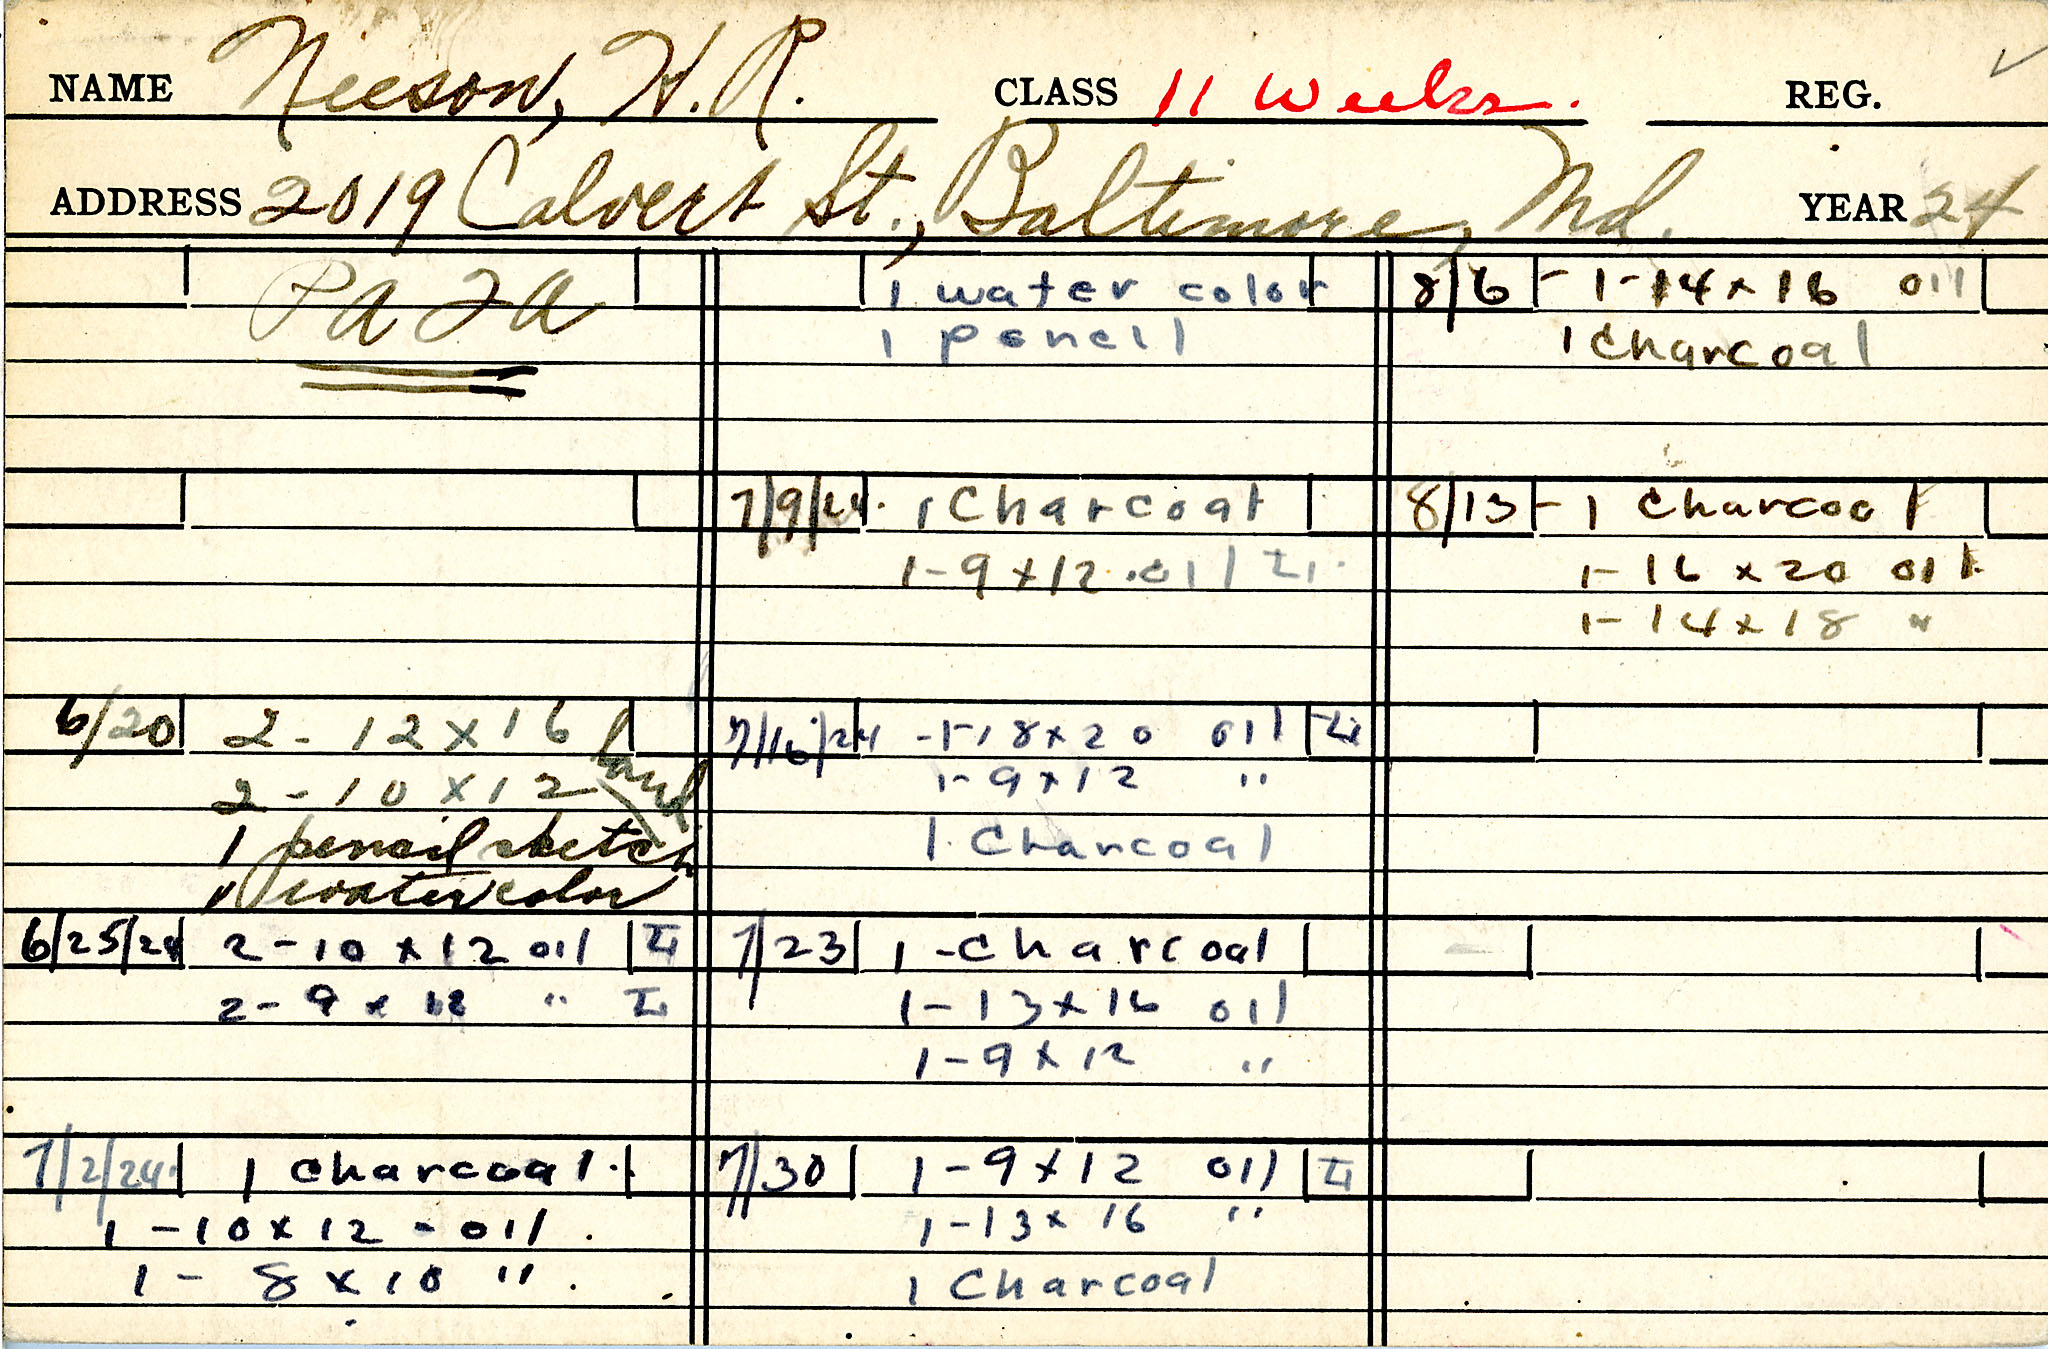 NAME Neeson, H.R. CLASS 11 Weeks. REG.
ADDRESS 2019 Calvert St., Baltimore, Md. YEAR 24
PAFA
6/20 2 - 12 x 16
2 - 10 x 12
1 pencil sketch
1 watercolor
6/25/24 2 - 10 x 12 oil
2 - 9 x 12 "
7/2/24 1 charcoal.
1 - 10 x 12 - oil.
1 - 8 x 10 ".
1 water color
1 pencil
7/9/24. 1 Charcoal
1 - 9 x 12 oil
7/16/24 - 1 - 18 x 20 oil
1 - 9 x 12 "
1 Charcoal
7/23 1 - charcoal
1 - 13 x 16 oil
1 - 9 x 12 "
7/30 1 - 9 x 12 oil
1 - 13 x 16 "
1 Charcoal
8/6 - 1 - 14 x 16 oil
1 charcoal
8/13 - 1 charcoal
1 - 16 x 20 oil
1 - 14 x 18 "